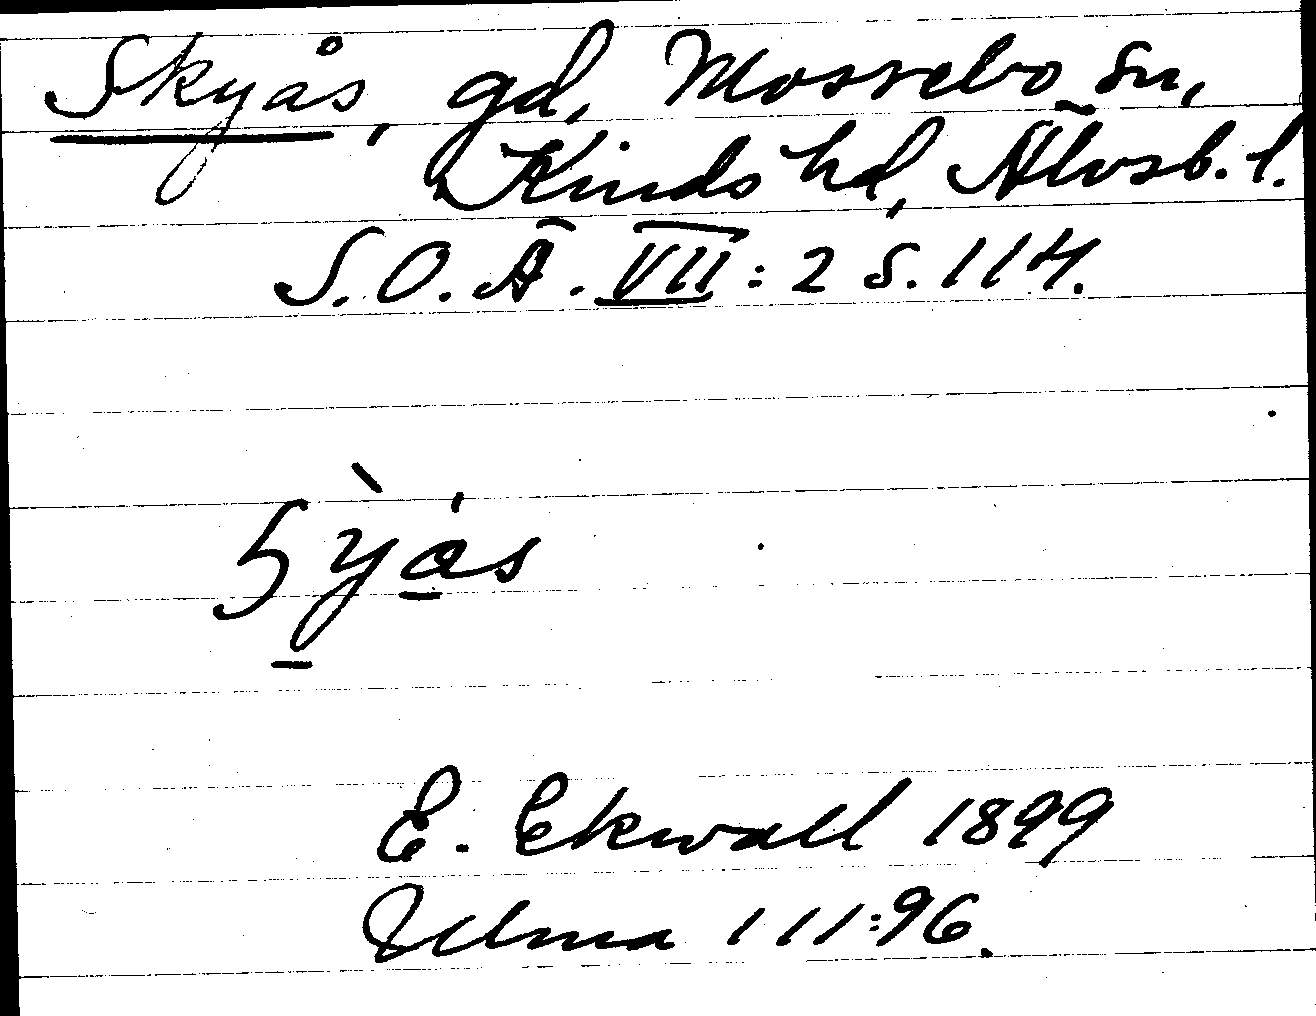 Skyås, gd, Mossebo sn,
Kinds hd, Älvsb. l.
S.O.Ä. VII: 2 S. 114.
E. Ekwall 1899
Ulma 111:96.